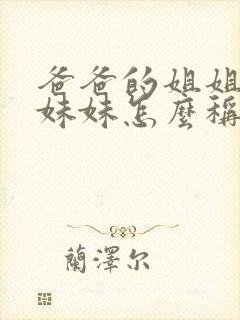 爸爸的姐姐
妹妹怎麼稱
蘭澤尔